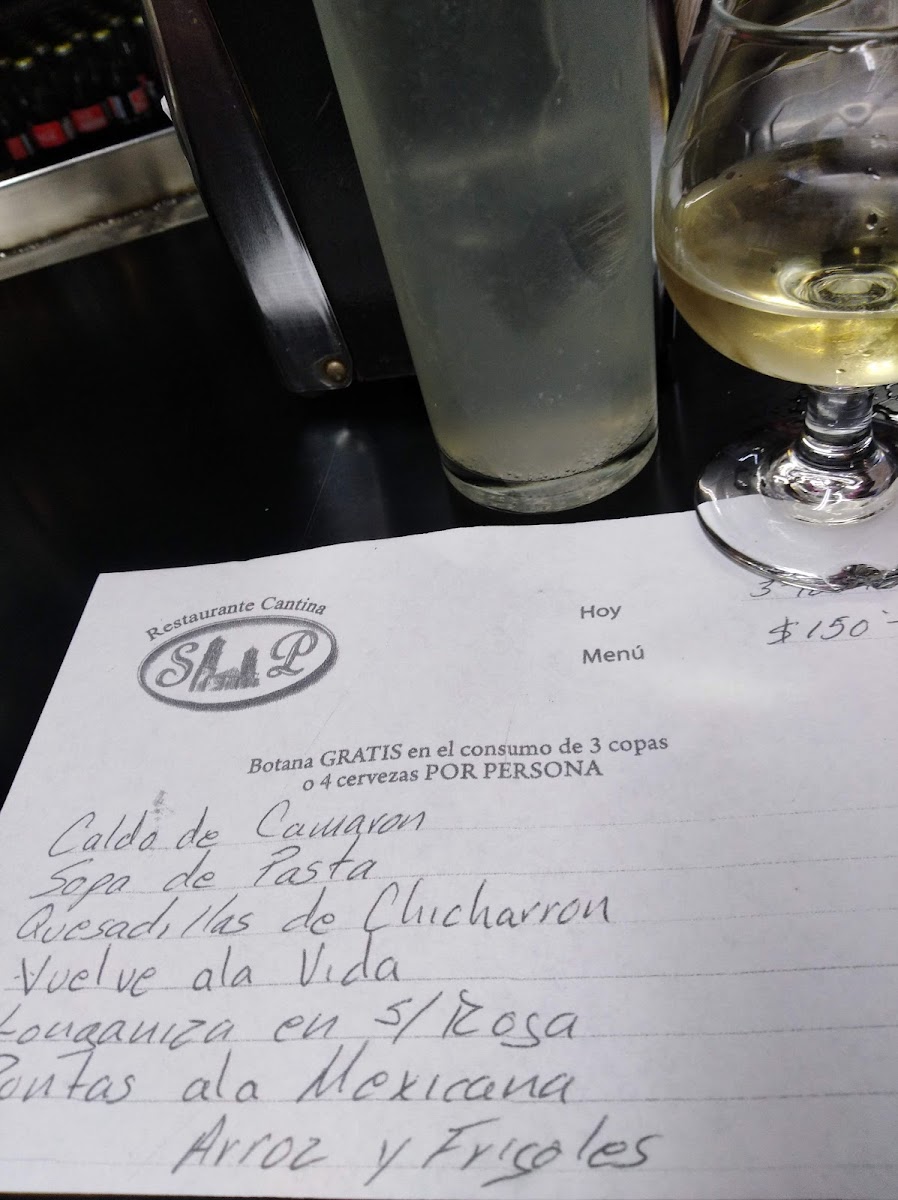 Restaurante Cantina
S P
Hoy
Menú
$150
Botana GRATIS en el consumo de 3 copas
o 4 cervezas POR PERSONA
Caldo de Camaron
Sopa de Pasta
Quesadillas de Chicharron
Vuelve ala Vida
Longaniza en S/ Roja
Puntas ala Mexicana
Arroz y Frijoles